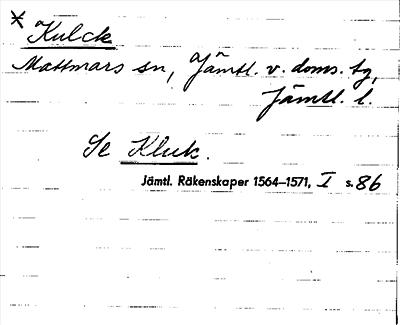 * Kulck
Mattmars sn, Jämtl. v. doms. tg,
Jämtl. l.
Se Kluk.
Jämtl. Räkenskaper 1564–1571, I s. 86